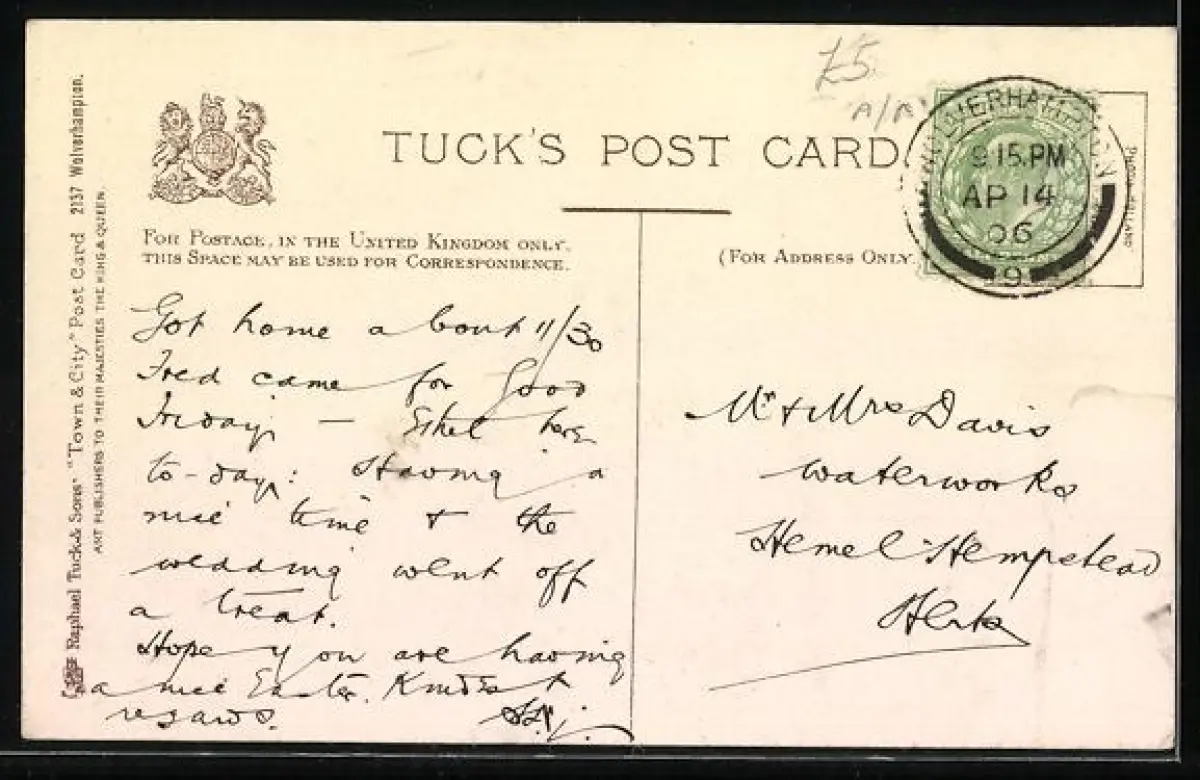 £5
A/A
TUCK'S POST CARD
WOLVERHAMPTON
9 15.PM
AP 14
06
9
FOR POSTAGE, IN THE UNITED KINGDOM ONLY,
THIS SPACE MAY BE USED FOR CORRESPONDENCE.
(FOR ADDRESS ONLY.
Got home about 11/30
Fred came for Good
Friday – Ethel here
to-day: Having a
nice time & the
wedding went off
a treat.
Hope you are having
a nice Easter. Kindest
regards.
Mr & Mrs Davis
Waterworks
Hemel Hempstead
Herts
Raphael Tuck & Sons' "Town & City" Post Card 2137 Wolverhampton.
ART PUBLISHERS TO THEIR MAJESTIES THE KING & QUEEN.